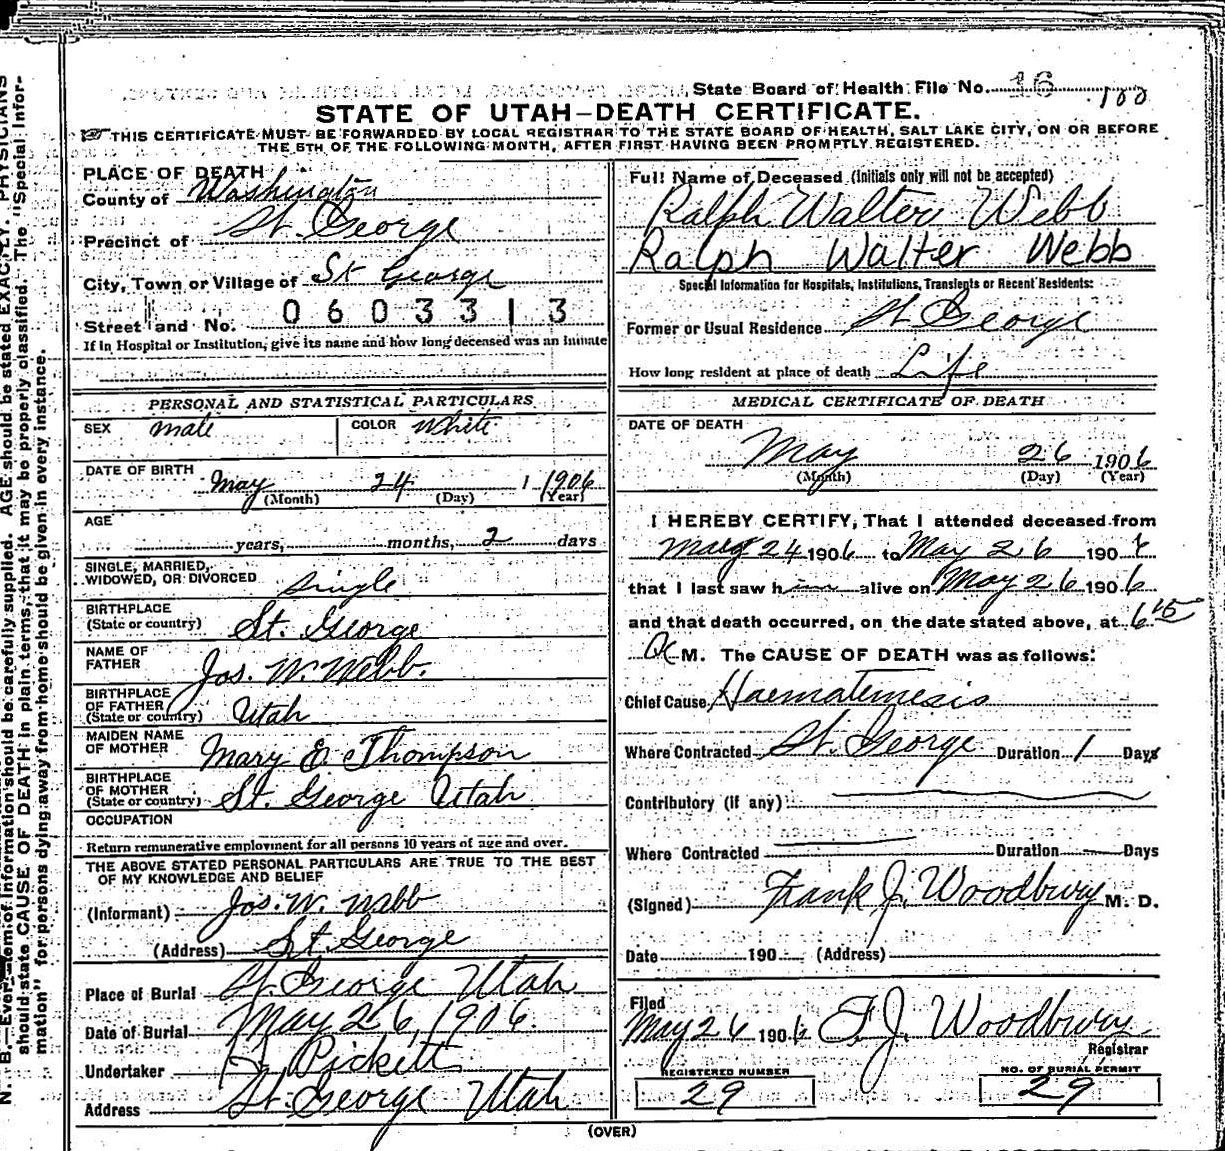 State Board of Health File No. 16 100
STATE OF UTAH–DEATH CERTIFICATE.
THIS CERTIFICATE MUST BE FORWARDED BY LOCAL REGISTRAR TO THE STATE BOARD OF HEALTH, SALT LAKE CITY, ON OR BEFORE
THE 5TH OF THE FOLLOWING MONTH, AFTER FIRST HAVING BEEN PROMPTLY REGISTERED.
PLACE OF DEATH
County of Washington
Precinct of St. George
City, Town or Village of St George
Street and No. 0603313
If in Hospital or Institution, give its name and how long deceased was an inmate
PERSONAL AND STATISTICAL PARTICULARS
SEX male COLOR white
DATE OF BIRTH May 24 1906
(Month) (Day) (Year)
AGE
years, months, 2 days
SINGLE, MARRIED,
WIDOWED, OR DIVORCED single
BIRTHPLACE
(State or country) St. George
NAME OF
FATHER Jos. W. Webb.
BIRTHPLACE
OF FATHER
(State or country) Utah
MAIDEN NAME
OF MOTHER Mary E. Thompson
BIRTHPLACE
OF MOTHER
(State or country) St. George Utah
OCCUPATION
Return remunerative employment for all persons 10 years of age and over.
THE ABOVE STATED PERSONAL PARTICULARS ARE TRUE TO THE BEST
OF MY KNOWLEDGE AND BELIEF
(Informant) Jos. W. Webb
(Address) St. George
Place of Burial St. George Utah
Date of Burial May 26, 1906.
Undertaker Pickett
Address St. George Utah
Full Name of Deceased (Initials only will not be accepted)
Ralph Walter Webb
Ralph Walter Webb
Special Information for Hospitals, Institutions, Transients or Recent Residents:
Former or Usual Residence St. George
How long resident at place of death Life
MEDICAL CERTIFICATE OF DEATH
DATE OF DEATH
May 26 1906
(Month) (Day) (Year)
I HEREBY CERTIFY, That I attended deceased from
May 24 1906 to May 26 1906
that I last saw him alive on May 26 1906
and that death occurred, on the date stated above, at 6:15
a M. The CAUSE OF DEATH was as follows:
Chief Cause Haematemesis
Where Contracted St. George Duration 1 Days
Contributory (if any)
Where Contracted Duration Days
(Signed) Frank J. Woodbury M. D.
Date 190 (Address)
Filed
May 26 1906 F. J. Woodbury
Registrar
REGISTERED NUMBER
29
NO. OF BURIAL PERMIT
29
(OVER)
N. B.—Every item of information should be carefully supplied. AGE should be stated EXACTLY. PHYSICIANS
should state CAUSE OF DEATH in plain terms, that it may be properly classified. The "Special Infor-
mation" for persons dying away from home should be given in every instance.